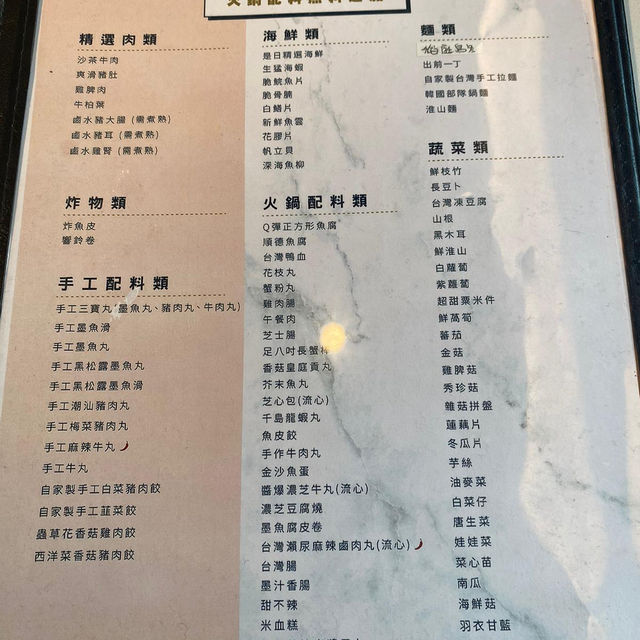 精選肉類
沙茶牛肉
爽滑豬肚
雞脾肉
牛柏葉
鹵水豬大腸 (需煮熟)
鹵水豬耳 (需煮熟)
鹵水雞腎 (需煮熟)
炸物類
炸魚皮
響鈴卷
手工配料類
手工三寶丸(墨魚丸、豬肉丸、牛肉丸)
手工墨魚滑
手工墨魚丸
手工黑松露墨魚丸
手工黑松露墨魚滑
手工潮汕豬肉丸
手工梅菜豬肉丸
手工麻辣牛丸
手工牛丸
自家製手工白菜豬肉餃
自家製手工韮菜餃
蟲草花香菇雞肉餃
西洋菜香菇豬肉餃
海鮮類
是日精選海鮮
生猛海蝦
脆鯇魚片
脆骨腩
白鱔片
新鮮魚雲
花膠片
帆立貝
深海魚柳
火鍋配料類
Q彈正方形魚腐
順德魚腐
台灣鴨血
花枝丸
蟹粉丸
雞肉腸
午餐肉
芝士腸
足八吋長蟹棒
香菇皇庭貢丸
芥末魚丸
芝心包(流心)
千島龍蝦丸
魚皮餃
手作牛肉丸
金沙魚蛋
醬爆濃芝牛丸(流心)
濃芝豆腐燒
墨魚腐皮卷
台灣瀨尿麻辣鹵肉丸(流心)
台灣腸
墨汁香腸
甜不辣
米血糕
麵類
出前一丁
自家製台灣手工拉麵
韓國部隊鍋麵
淮山麵
蔬菜類
鮮枝竹
長豆卜
台灣凍豆腐
山根
黑木耳
鮮淮山
白蘿蔔
紫蘿蔔
超甜粟米件
鮮萵筍
蕃茄
金菇
雞脾菇
秀珍菇
雜菇拼盤
蓮藕片
冬瓜片
芋絲
油麥菜
白菜仔
唐生菜
娃娃菜
菜心苗
南瓜
海鮮菇
羽衣甘藍